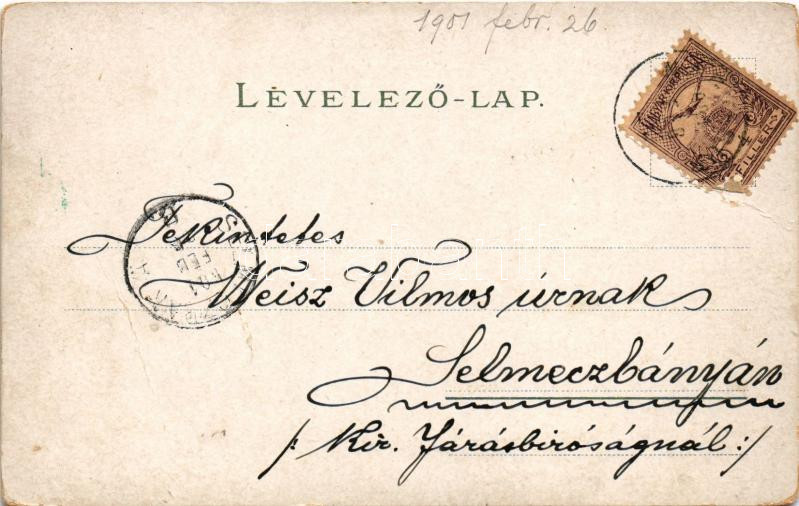 1901 febr. 26.
LEVELEZŐ-LAP.
FILLER
Tekintetes
Weisz Vilmos úrnak
Selmeczbányán
/: Kir. Járásbiróságnál :/